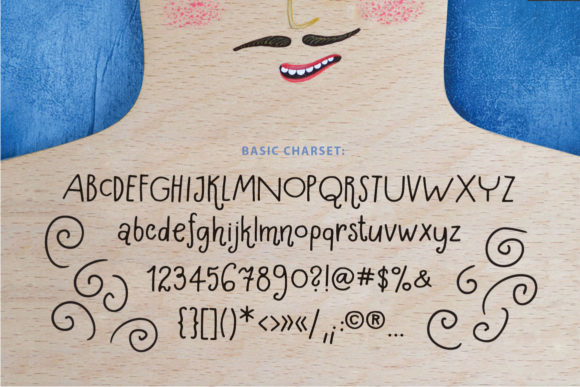 BASIC CHARSET:
ABCDEFGHIJKLMNOPQRSTUVWXYZ
abcdefghijklmnopqrstuvwxyz
1234567890?!@#$%&
{}[]()*<>»«/,¡:©®...